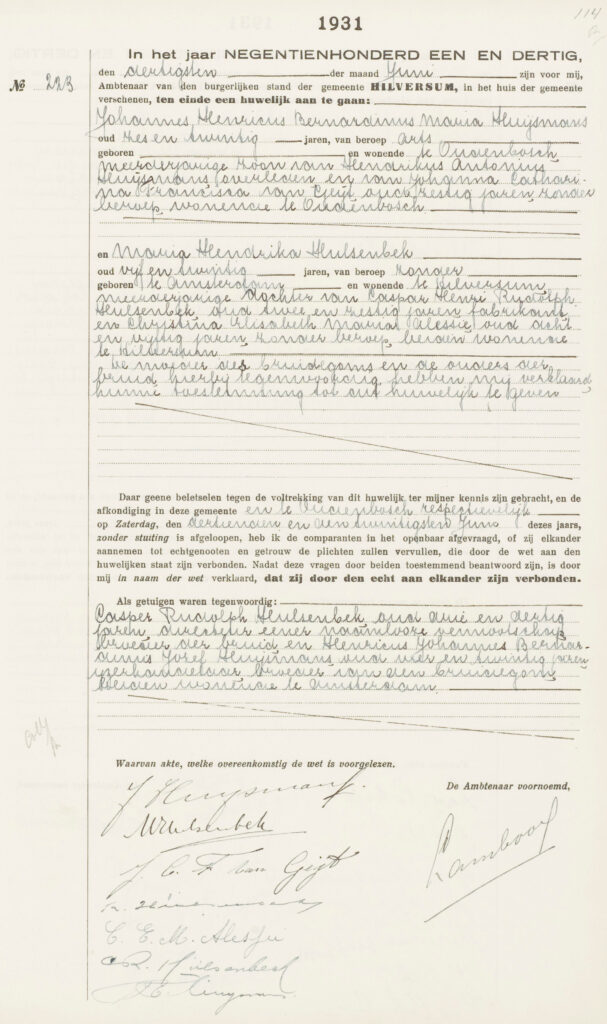 1931
114
In het jaar NEGENTIENHONDERD EEN EN DERTIG,
No 223 den dertigsten der maand Juni zijn voor mij,
Ambtenaar van den burgerlijken stand der gemeente HILVERSUM, in het huis der gemeente
verschenen, ten einde een huwelijk aan te gaan:
Johannes Henricus Bernardinus Maria Huijsmans
oud zes en twintig jaren, van beroep arts
geboren en wonende te Oudenbosch
meerderjarige zoon van Hendrikus Antonius
Huijsmans overleden en van Johanna Cathari-
na Francisca van Geijt oud zestig jaren zonder
beroep wonende te Oudenbosch
en Maria Hendrika Hulsenbek
oud vijf en twintig jaren, van beroep zonder
geboren te Amsterdam en wonende te Hilversum
meerderjarige dochter van Caspar Henri Rudolph
Hulsenbek oud twee en zestig jaren fabrikant
en Christina Elisabeth Maria Alessie oud acht
en vijftig jaren zonder beroep beiden wonende
te Hilversum
De moeder des bruidegoms en de ouders der
bruid hierbij tegenwoordig hebben mij verklaard
hunne toestemming tot dit huwelijk te geven
Daar geene beletselen tegen de voltrekking van dit huwelijk ter mijner kennis zijn gebracht, en de
afkondiging in deze gemeente en te Oudenbosch respectievelijk
op Zaterdag, den dertienden en den twintigsten Juni dezes jaars,
zonder stuiting is afgeloopen, heb ik de comparanten in het openbaar afgevraagd, of zij elkander
aannemen tot echtgenooten en getrouw de plichten zullen vervullen, die door de wet aan den
huwelijken staat zijn verbonden. Nadat deze vragen door beiden toestemmend beantwoord zijn, is door
mij in naam der wet verklaard, dat zij door den echt aan elkander zijn verbonden.
Als getuigen waren tegenwoordig:
Casper Rudolph Hulsenbek oud drie en dertig
jaren directeur eener naamlooze vennootschap
broeder der bruid en Henricus Johannes Bernar-
dinus Jozef Huijsmans oud vier en twintig jaren
boeder van den bruidegom
beiden wonende te Amsterdam
Waarvan akte, welke overeenkomstig de wet is voorgelezen.
De Ambtenaar voornoemd,
J Huysmans.
MHulsenbek
J. C. F. van Geijt
Lambooy
C. E. M. Alessie
C R. Hulsenbek
Huysmans